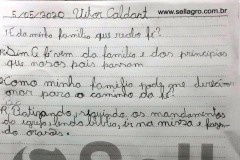 5/05/2020 Vitor Caldart www.sellagro.com.br
1- E da minha família que recebo fé?
R: Sim A fé vem da família e dos principios
que nossos pais passam
2 Como minha família pode me direcio
onar para o caminho da fé?
R: Praticando, seguindo os mandamentos
da igreja, lendo bíblia, ir na missa e fazen
do orações.